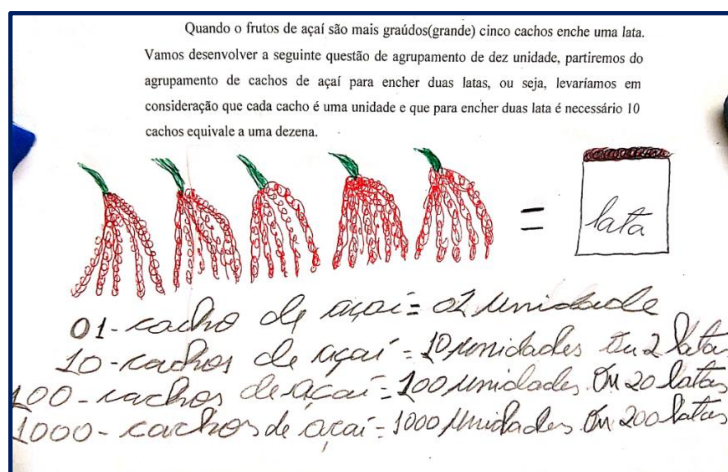 Quando o frutos de açaí são mais graúdos(grande) cinco cachos enche uma lata.
Vamos desenvolver a seguinte questão de agrupamento de dez unidade, partiremos do
agrupamento de cachos de açaí para encher duas latas, ou seja, levaríamos em
consideração que cada cacho é uma unidade e que para encher duas lata é necessário 10
cachos equivale a uma dezena.
= lata
01-cacho de açaí = 01 unidade
10-cachos de açaí = 10 unidades Ou 2 lata
100-cachos de açaí = 100 unidades Ou 20 latas
1000-cachos de açaí = 1000 unidades Ou 200 latas